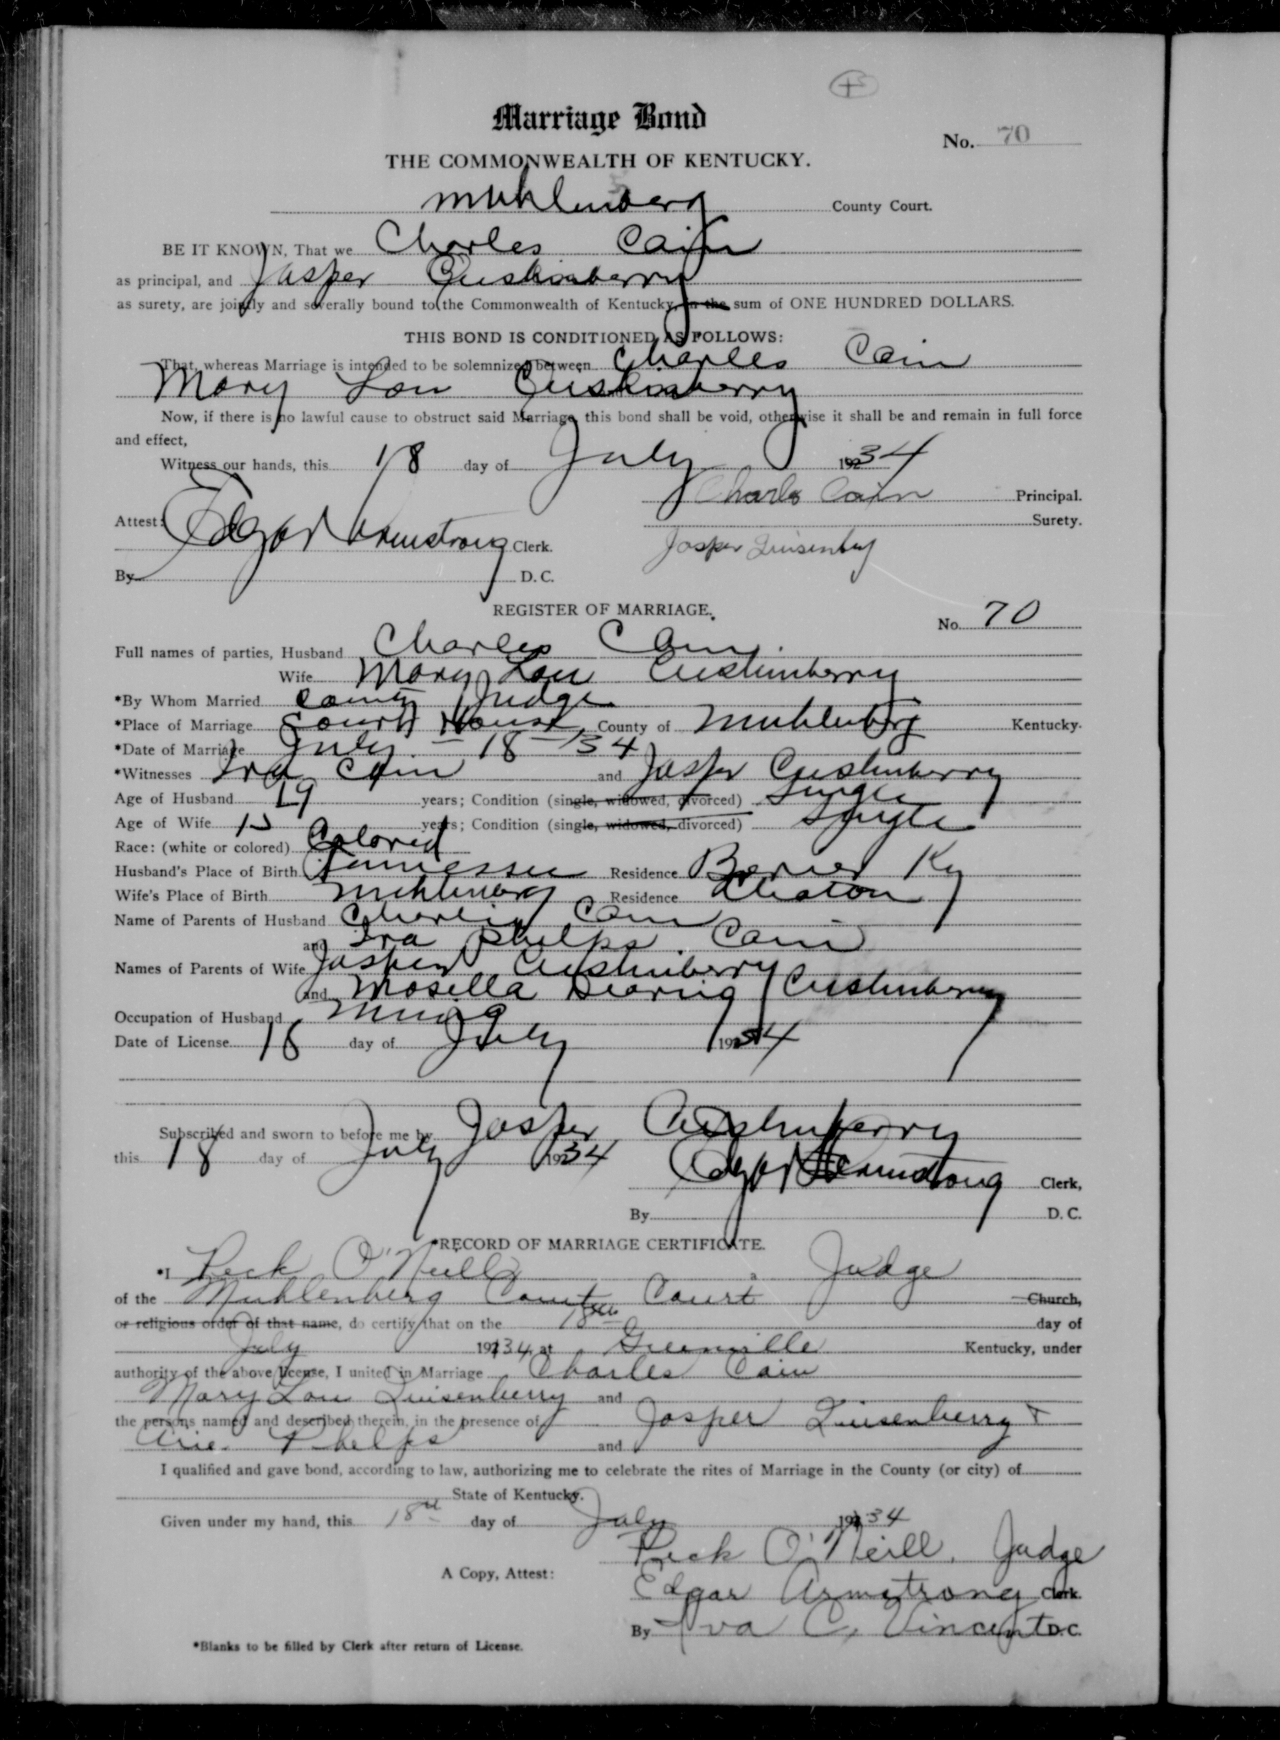 +
Marriage Bond
No. 70
THE COMMONWEALTH OF KENTUCKY.
Muhlenberg County Court.
BE IT KNOWN, That we Charles Cain
as principal, and Jasper
as surety, are jointly and severally bound to the Commonwealth of Kentucky, in the sum of ONE HUNDRED DOLLARS.
THIS BOND IS CONDITIONED AS FOLLOWS:
That, whereas Marriage is intended to be solemnized between Charles Cain
Mary Lou
Now, if there is no lawful cause to obstruct said Marriage, this bond shall be void, otherwise it shall be and remain in full force
and effect,
Witness our hands, this 18 day of July 1934
Charls Cain Principal.
Attest: Surety.
Edgar Armstrong Clerk. Jasper
By D. C.
REGISTER OF MARRIAGE.
No. 70
Full names of parties, Husband Charles Cain
Wife Mary Lou
*By Whom Married County Judge
*Place of Marriage Court House, County of Muhlenberg Kentucky.
*Date of Marriage July - 18 - 34
*Witnesses Ira Cain and Jasper
Age of Husband 19 years; Condition (single, widowed, divorced) Single
Age of Wife years; Condition (single, widowed, divorced) Single
Race: (white or colored) Colored
Husband's Place of Birth Tennessee Residence Ky
Wife's Place of Birth Muhlenberg Residence
Name of Parents of Husband Cain
and Ira Phelps Cain
Names of Parents of Wife Jasper
and Mosella Dearing
Occupation of Husband
Date of License 18 day of July 1934
Subscribed and sworn to before me by Jasper
this 18 day of July 1934
Edgar Armstrong Clerk,
By D. C.
*RECORD OF MARRIAGE CERTIFICATE.
*I Peck O'Neill Judge
of the Muhlenberg County Court Church,
or religious order of that name, do certify that on the 18th day of
July 1934 at Greenville Kentucky, under
authority of the above license, I united in Marriage Charles Cain
Mary Lou Quisenberry and
the persons named and described therein, in the presence of Jasper Quisenberry +
Arie Phelps and
I qualified and gave bond, according to law, authorizing me to celebrate the rites of Marriage in the County (or city) of
State of Kentucky.
Given under my hand, this 18th day of July 1934
Peck O'Neill, Judge
A Copy, Attest: Edgar Armstrong Clerk.
By Iva C. Vincent D. C.
*Blanks to be filled by Clerk after return of License.